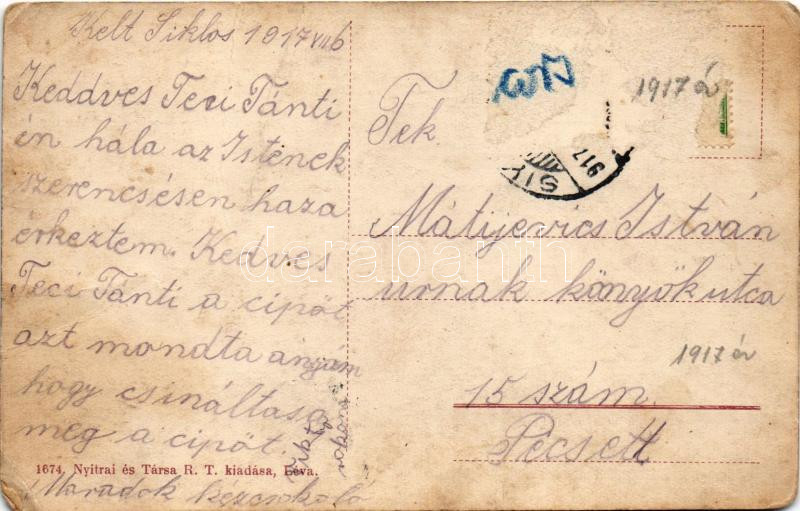 Kelt Siklos 1917 VII 6
Keddves Teci Tánti
én hála az Istenek
szerencsésen haza
érkeztem. Kedves
Teci Tánti a cipőt
azt mondta anyám
hogy csináltasa
meg a cipőt.
Maradok kezcsokoló
1674. Nyitrai és Társa R. T. kiadása, Léva.
1917 év
SIK
917
Tek
Mátijevics István
urnak könyök utca
1917 év
15 szám.
Pécsett
darabanth